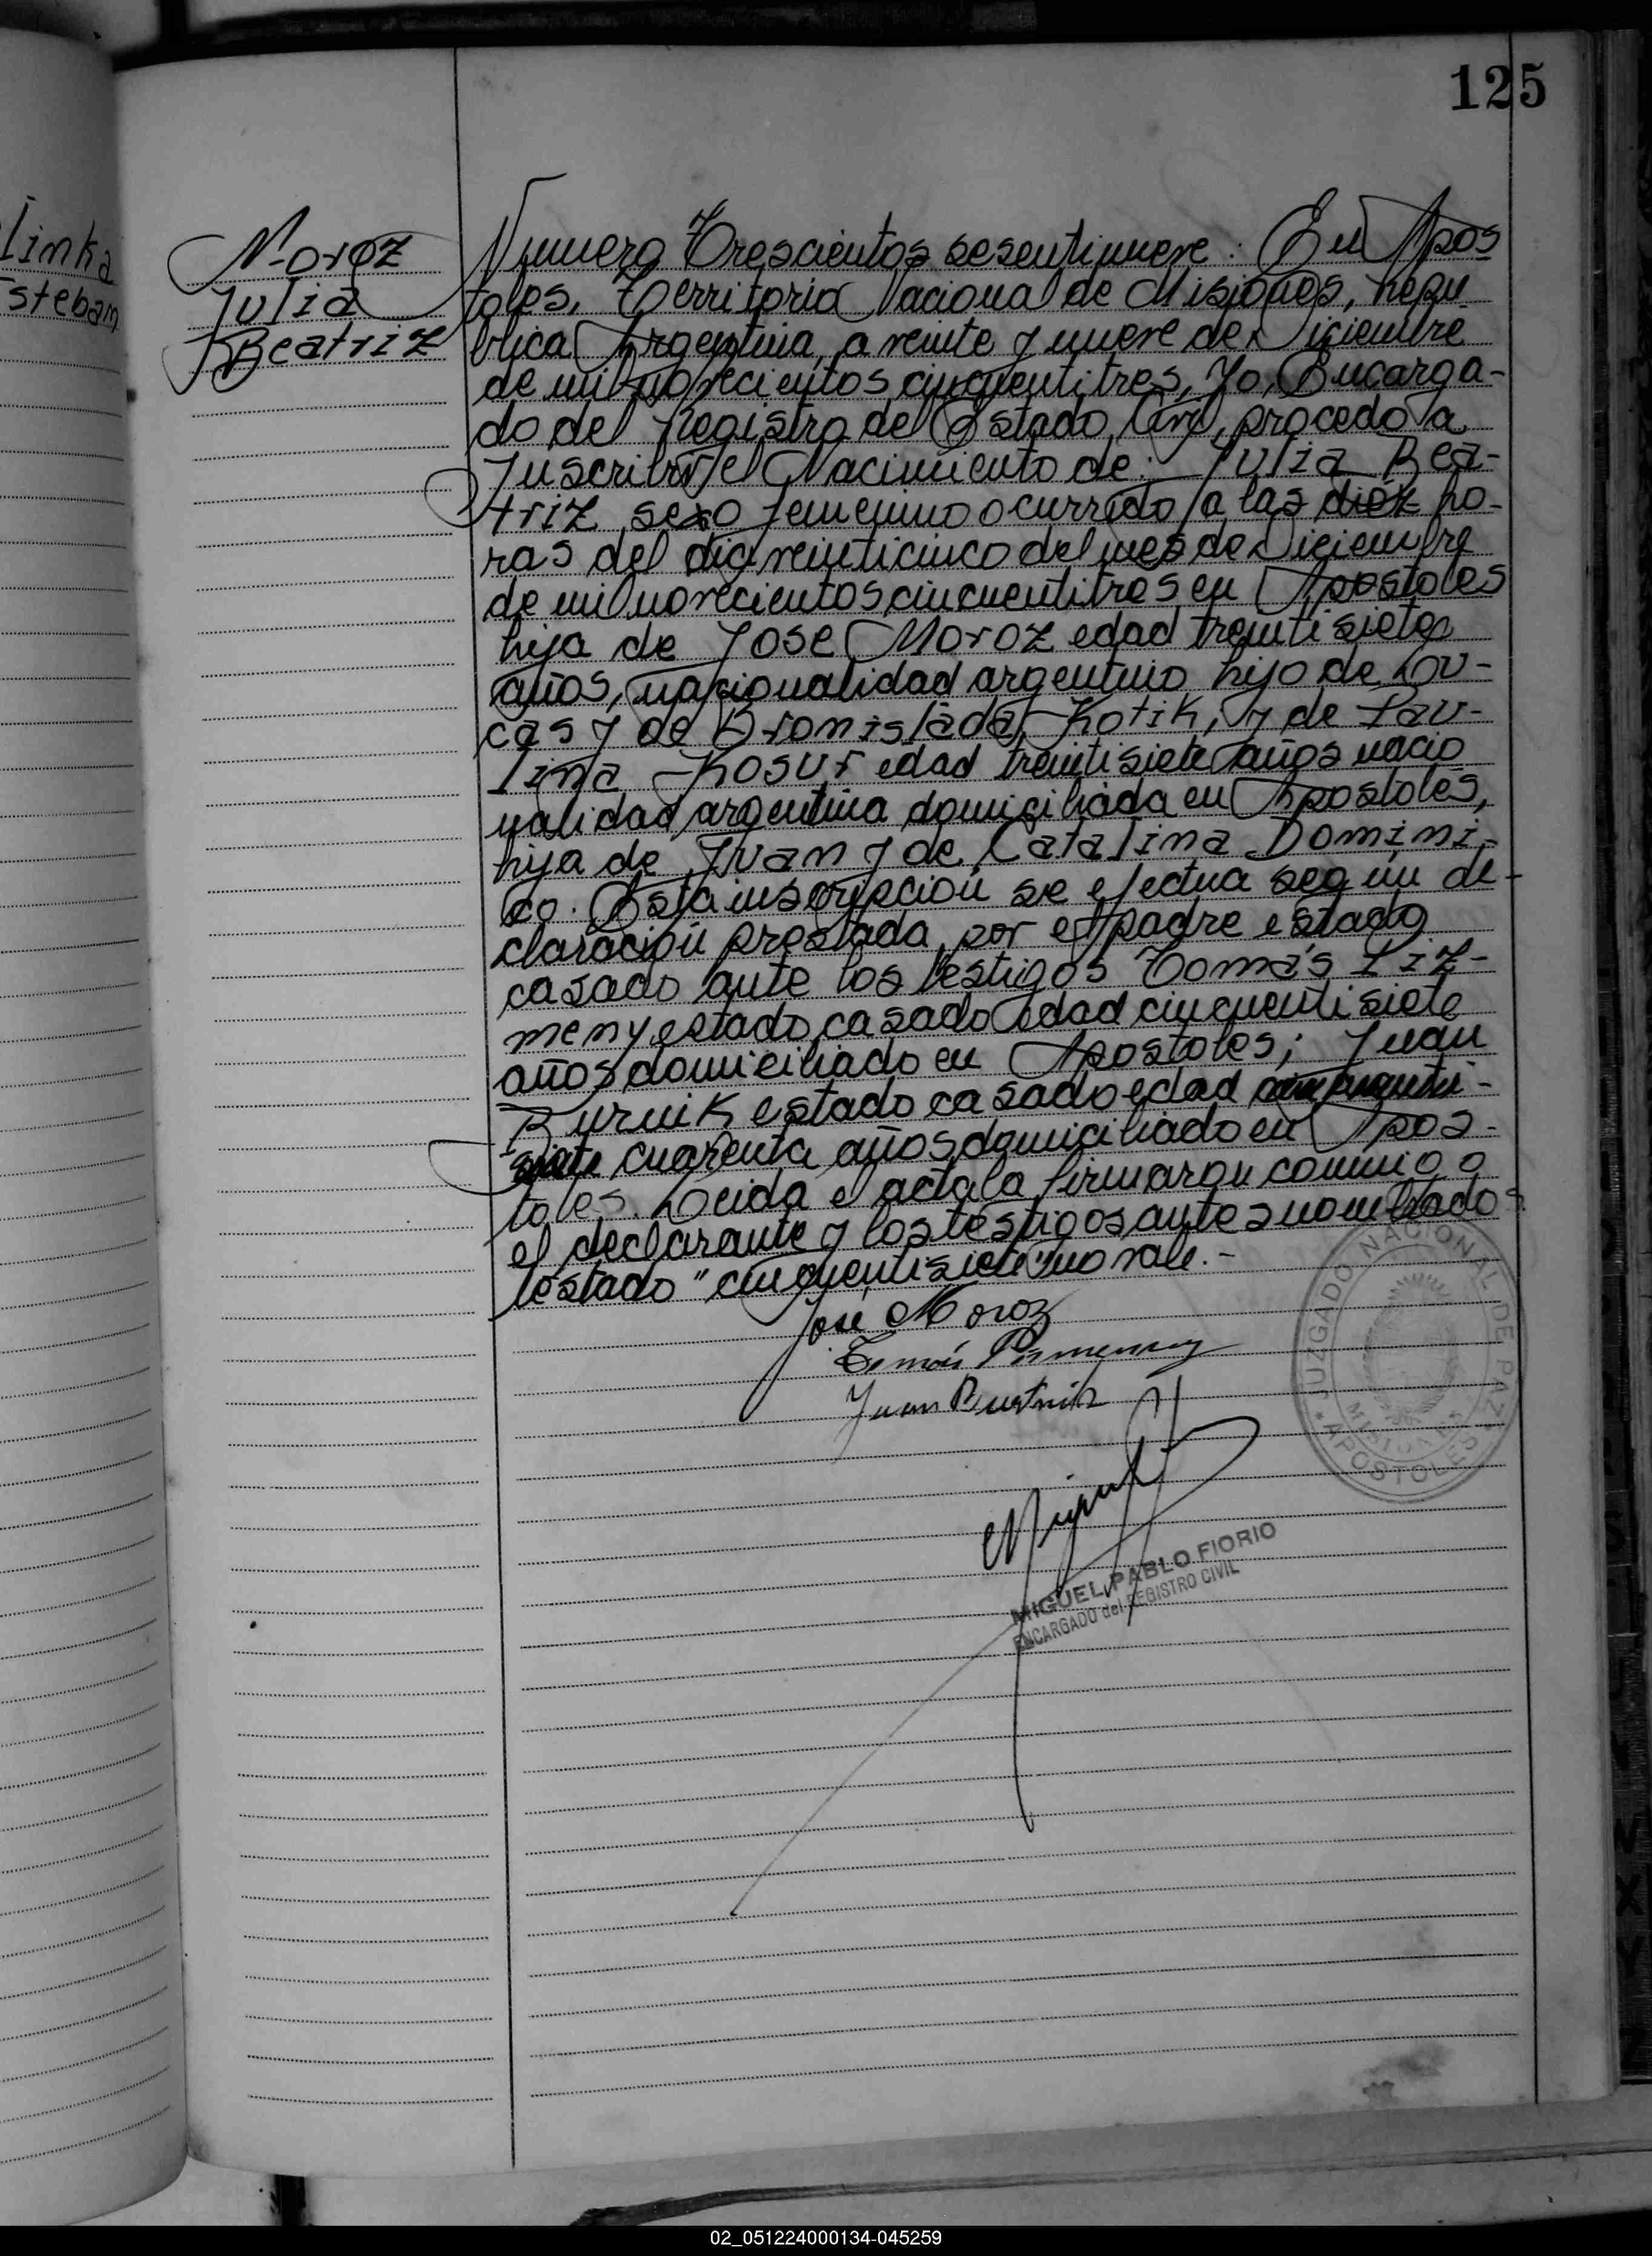 125
linka
Esteban
Moroz
Julia
Beatriz
Numero Trescientos sesentinueve: En Apos
toles, Territorio Nacional de Misiones, Repu
blica Argentina, a veinte y nueve de Diciembre
de mil novecientos cincuentitres, Yo, Encarga-
do del Registro del Estado Civil, procedo a
Inscribir el Nacimiento de: Julia Bea-
triz sexo femenino ocurrido a las diéz ho-
ras del dia veinticinco del mes de Diciembre
de mil novecientos cincuentitres en Apostoles
hija de Jose Moroz edad treintisiete
años, nacionalidad argentino hijo de Lu-
cas y de Bronislada Kotik, y de Pau-
lina Kosur edad treintisiete años nacio
nalidad argentina domiciliada en Apostoles,
hija de Ivan y de Catalina Domini-
co. Esta inscripción se efectua según de-
claración prestada por el padre estado
casado ante los testigos Tomás Piz-
meny estado casado edad cincuentisiete
años domiciliado en Apostoles; Juan
Burnik estado casado edad cincuenti-
siete cuarenta años domiciliado en Apos-
toles. Leida el acta la firmaron conmigo
el declarante y los testigos antes nombrados
testado "cincuentisiete" no vale.-
José Moroz
Tomás
Juan
Miguel
MIGUEL PABLO FIORIO
ENCARGADO del REGISTRO CIVIL
JUZGADO NACIONAL DE PAZ
MISIONES
* APOSTOLES *
02_051224000134-045259